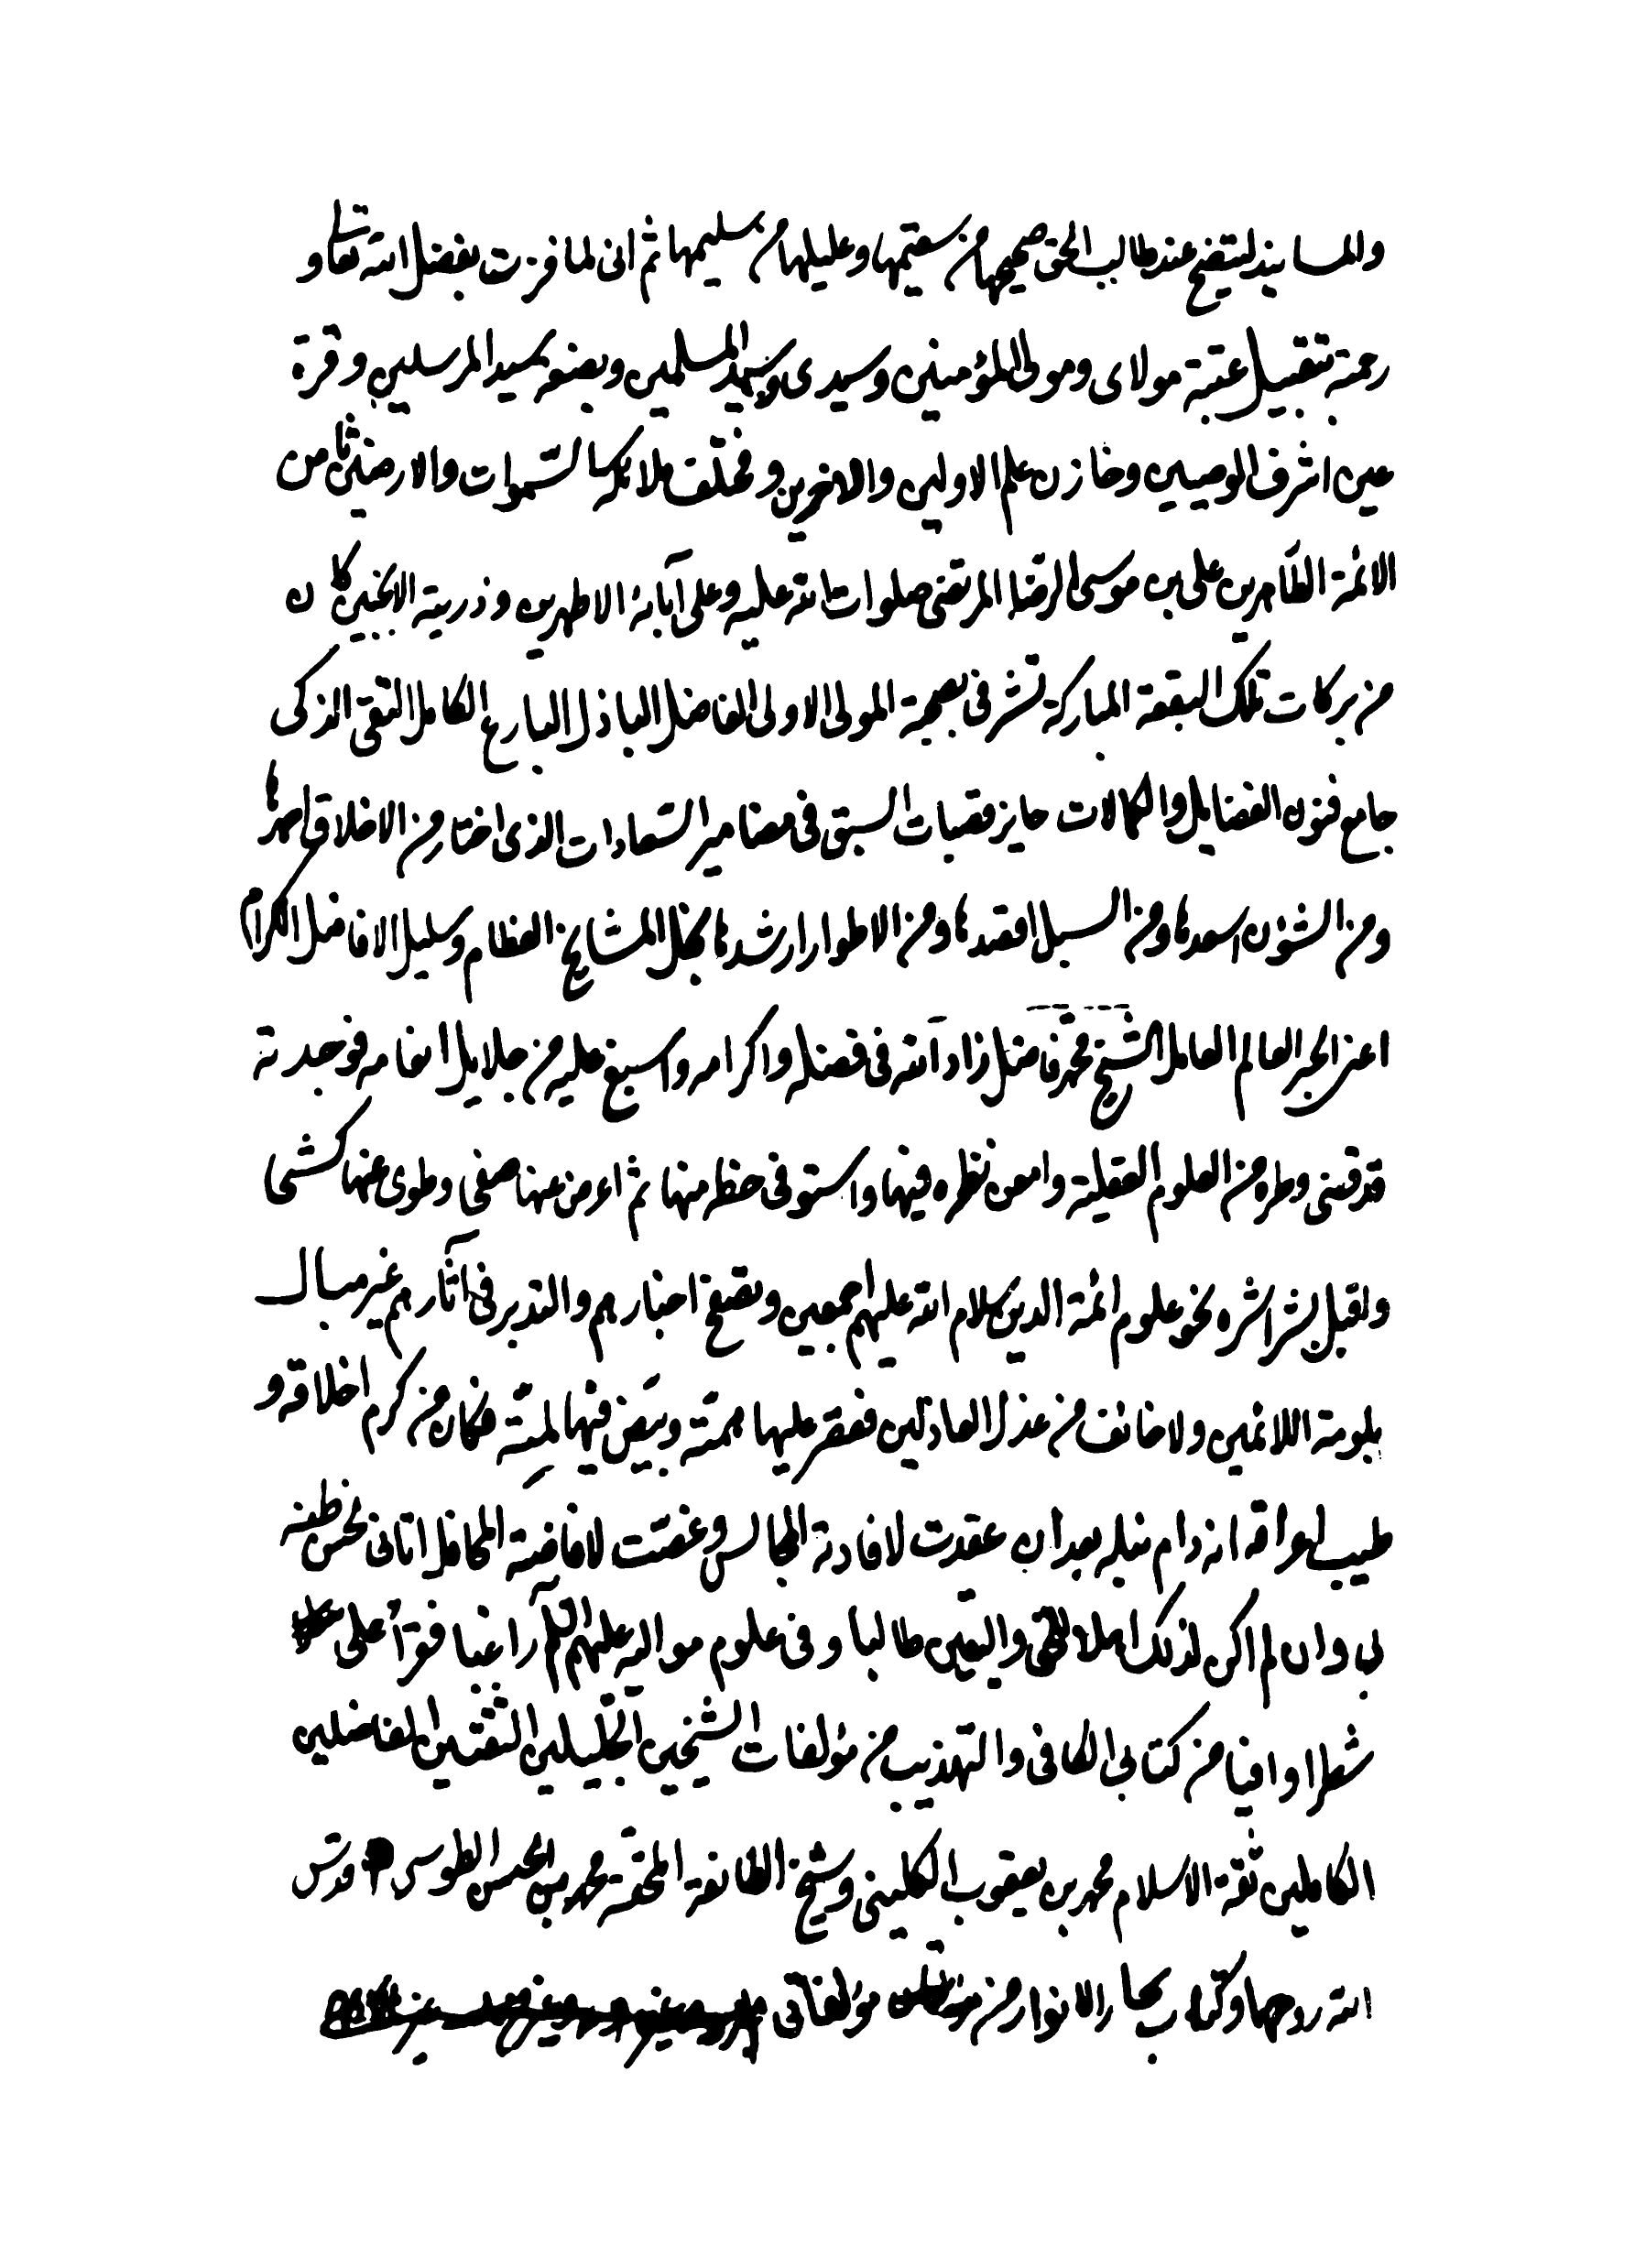 والمسانيد ليتضح عند طالب الحق صحيحها من سقيمها وعليلها من سليمها ثم انى لما فزت بفضل الله تعا و
رحمته بتقبيل عتبة مولاى ومولى المؤمنين وسيدى وسيد المسلمين وبضعة سيد المرسلين وقرة
عين اشرف الوصيين وخازن علم الاولين والاخرين ومختلف ملائكة السّموات والارضين ثامن
الائمة الطّاهرين على بن موسى الرضا المرتضى صلوات الله عليه وعلى آبائه الاطهرين وذريته الانجبين كان
من بركات تلك البقعة المباركة تشرفى بصحبة المولى الاولى الفاضل الباذل البارع الكامل التقى الذكى
جامع فنون الفضايل والكمالات حايز قصبات السبق فى مضامير السّعادات الذى اختار من الاخلاق احمدها
ومن الشؤن اسعدها ومن السبل اقصدها ومن الاطوار ارشدها نجل المشايخ العظام وسليل الافاضل الكرام
اعنى الحبر العالم العامل الشيخ محمّد فاضل زاد الله فى فضله واكرامه واسبغ عليه من جلايل انعامه فوجدته
قد قضى وطره من العلوم العقلية وامعن نظره فيها واستوفى حظه منها ثم اعرض عنها صفحا وطوى عنها كشحا
واقبل بشراشره نحو علوم ائمة الدين سلام الله عليهم اجمعين وتصفح اخبارهم والتدبر فى آثارهم غير مبال
بلومة اللائمين ولا خائف من عذل العاذلين فقصر عليها همّته وبيّض فيها لمّته فكان من كرم اخلاقه و
طيب اعراقه انه دام نبله بعد ان عقدت لافادته المجالس وغصّت لافاضته المحافل اتانى لحسن ظنه
بى وان لم اكن لذلك اهلا للحق واليقين طالبا وفى علوم مواليه عليهم السّلم راغبا فقرأ على
شطرا وافيا من كتابى الكافى والتهذيب من مؤلفات الشيخين الجليلين الثقتين الفاضلين
الكاملين ثقة الاسلام محمد بن يعقوب الكلينى وشيخ الطائفة المحقّة محمد بن الحسن الطوسى قدّس
الله روحهما وكتاب بحار الانوار من مؤلفاتى